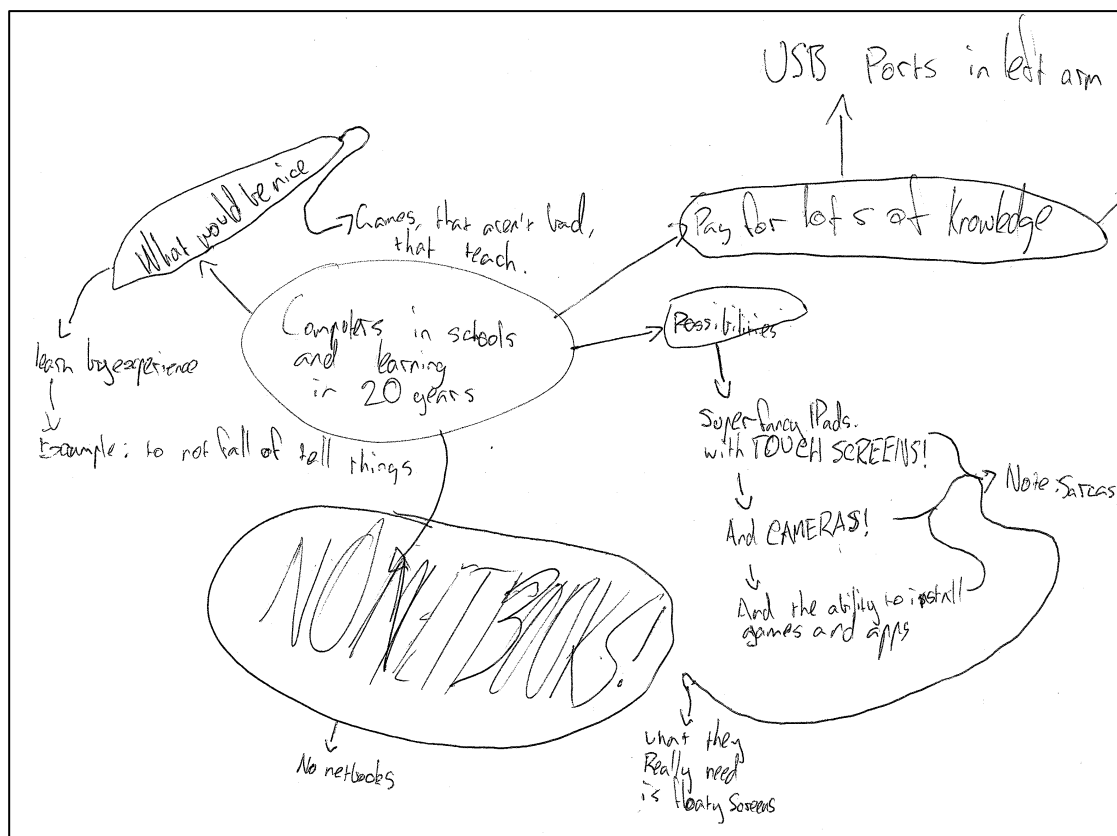 USB Ports in left arm
What would be nice
Games, that aren't bad,
that teach.
Pay for lots of knowledge
Computers in schools
and learning
in 20 years
Possibilities
learn by experience
Example: to not fall of tall things
Super fancy IPads.
with TOUCH SCREENS!
Note: Sarcas
And CAMERAS!
NO NETBOOKS!
And the ability to install
games and apps
No netbooks
what they
Really need
is floaty Screens